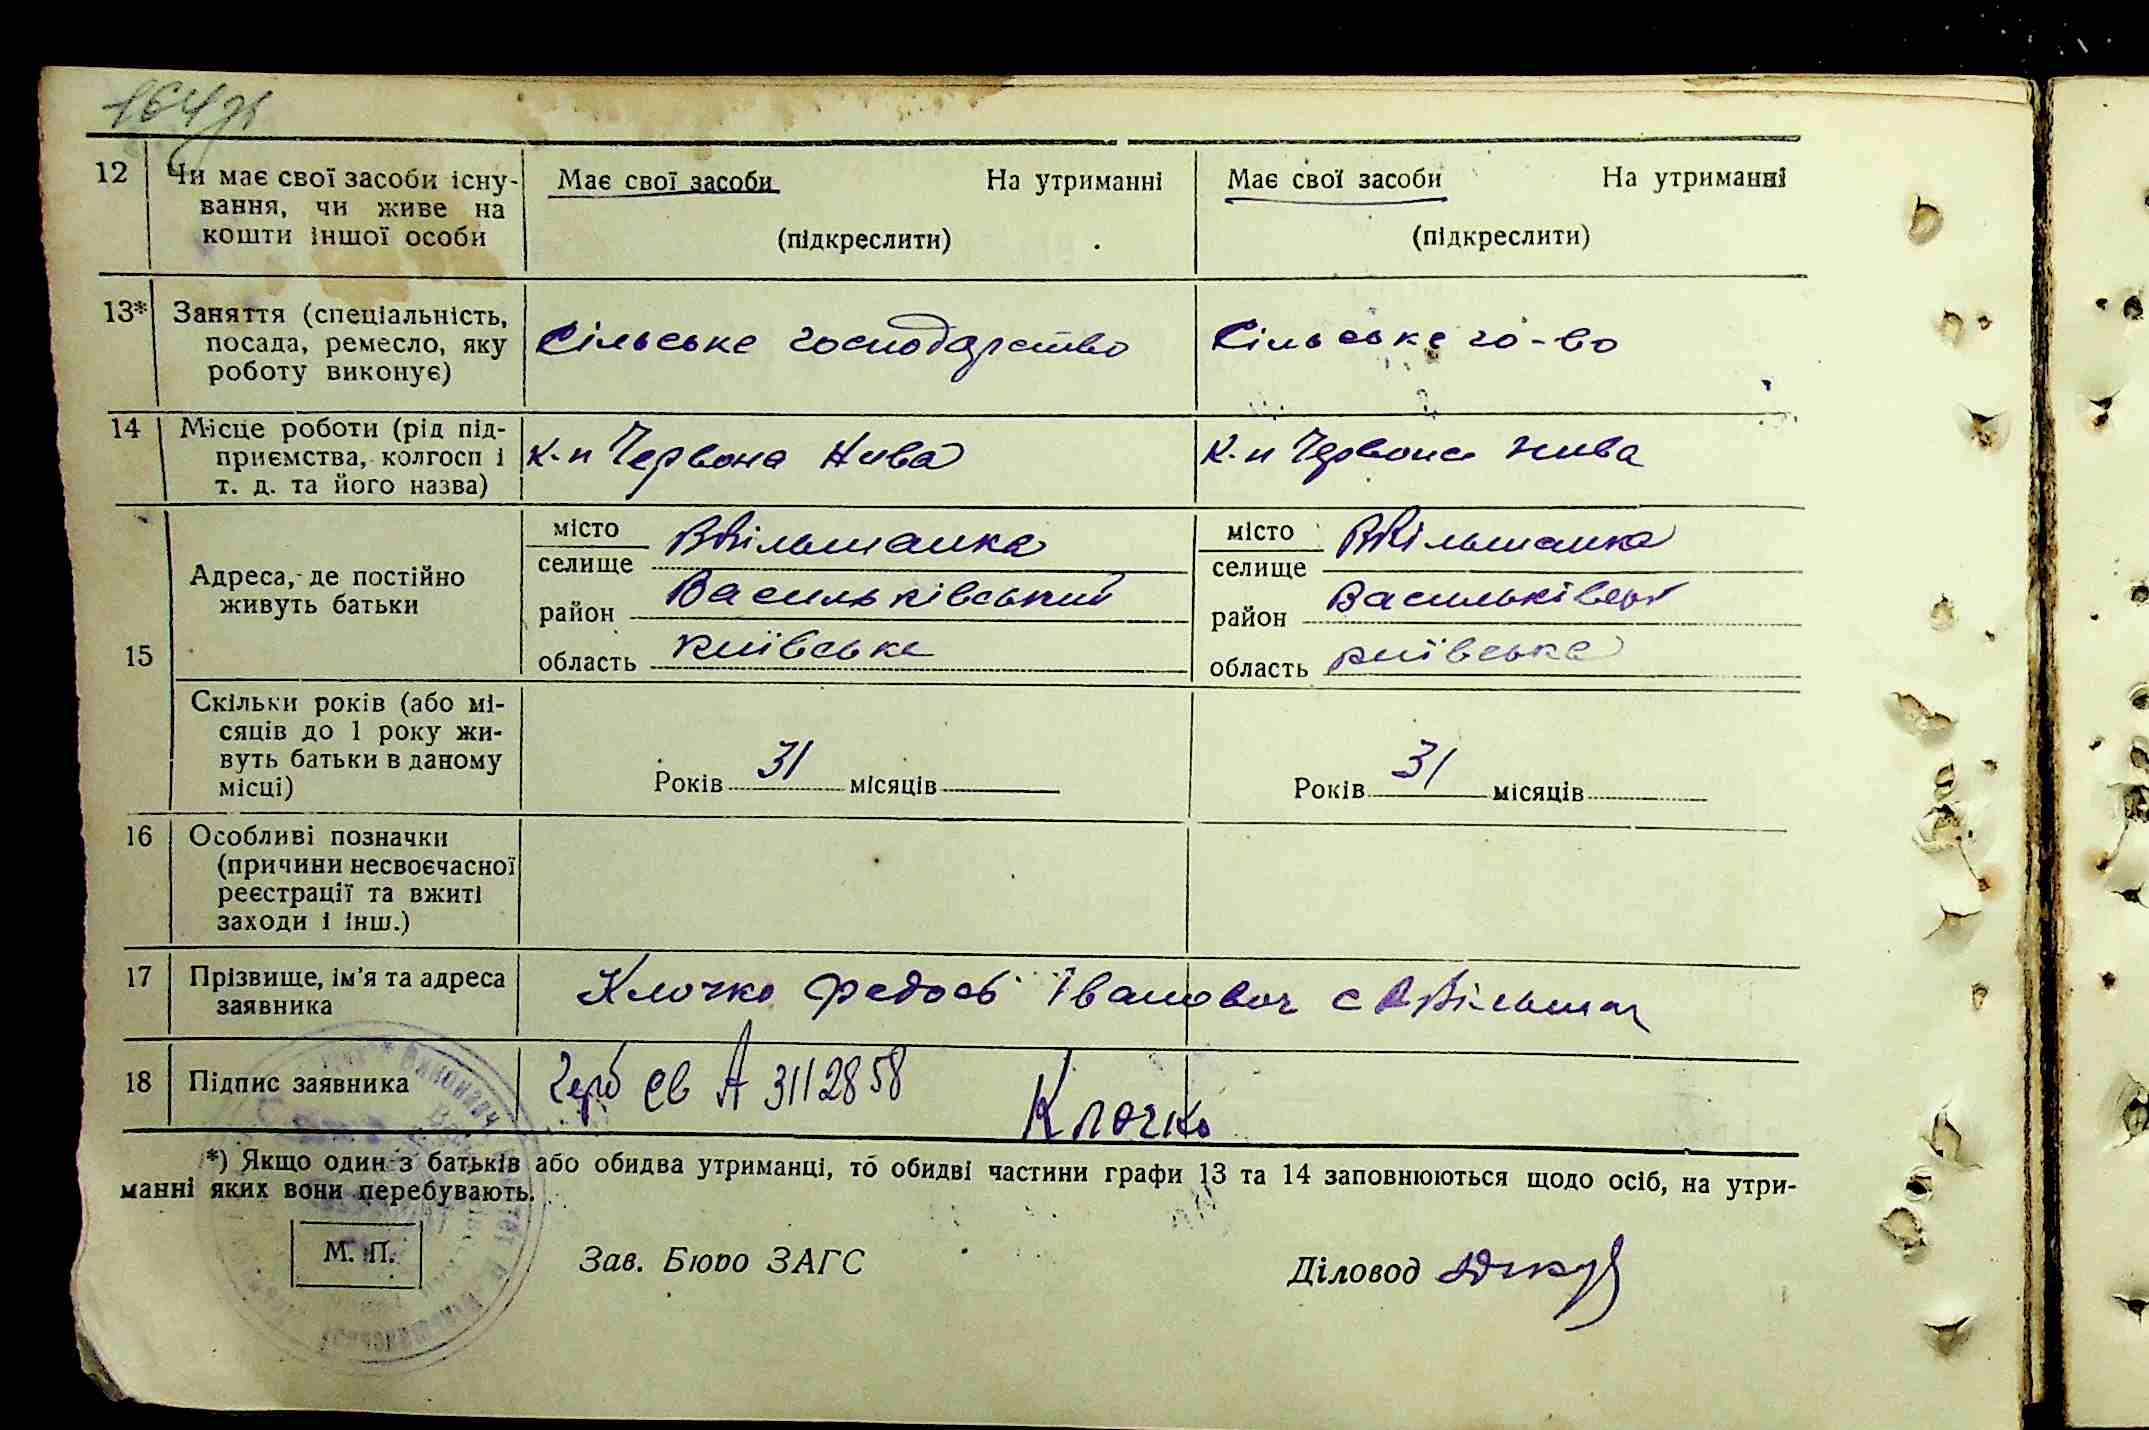 164 зв
12 Чи має свої засоби існу- Має свої засоби На утриманні Має свої засоби На утриманні
вання, чи живе на
кошти іншої особи (підкреслити) (підкреслити)
13* Заняття (спеціальність,
посада, ремесло, яку Сільське господарство Сільське го-во
роботу виконує)
14 Місце роботи (рід під-
приємства, колгосп і к-п Червона Нива к-п Червона нива
т. д. та його назва)
15 Адреса, де постійно
живуть батьки
місто ВВільшанка місто ВВільшанка
селище селище
район Васильківський район Васильківськ
область київська область київська
Скільки років (або мі-
сяців до 1 року жи-
вуть батьки в даному
місці) Років 31 місяців Років 31 місяців
16 Особливі позначки
(причини несвоєчасної
реєстрації та вжиті
заходи і інш.)
17 Прізвище, ім'я та адреса Клочко Федось Іванович с ВВільшан
заявника
18 Підпис заявника герб св А 3112858 Клочко
*) Якщо один з батьків або обидва утриманці, то обидві частини графи 13 та 14 заповнюються щодо осіб, на утри-
манні яких вони перебувають.
М. П. Зав. Бюро ЗАГС Діловод